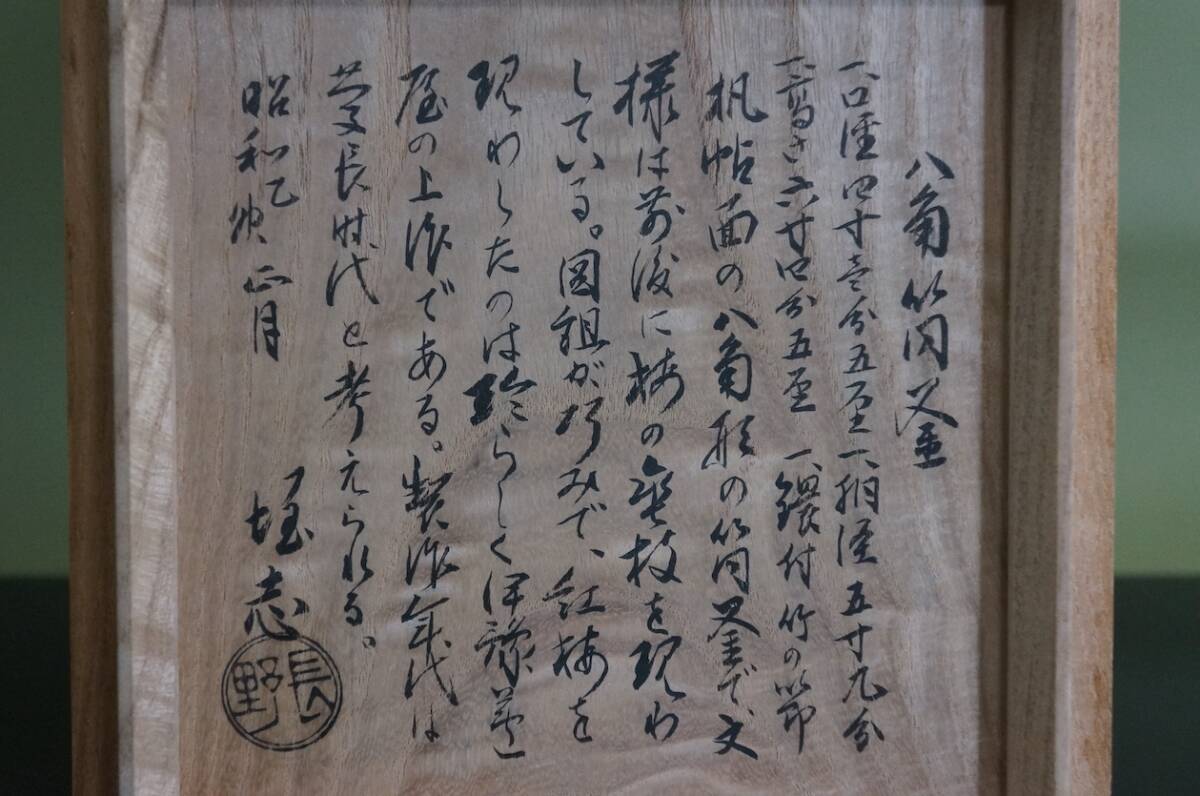 八角筒釜
一、口径四寸壱分五厘 一、胴径 五寸九分
一、高さ六寸四分五厘 一、鐶付 竹の節
机帖面の八角形の筒釜で、文
様は前後に梅の立枝を現わ
している。図組が巧みで、紅梅を
現わしたのは珍らしく伊豫芦
屋の上作である。製作年代は
慶長時代と考えられる。
昭和乙卯 正月
堀 志
長野